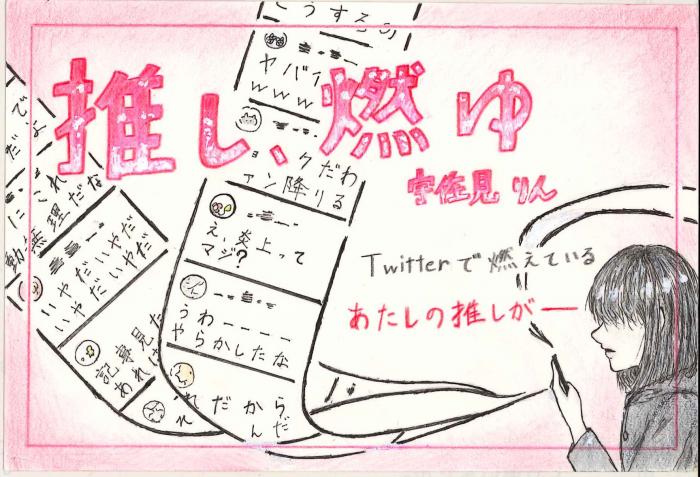 推し、燃ゆ
宇佐見りん
Twitterで燃えている
あたしの推しがー
こうするの
ヤバイ
www
ョックだわ
ァン降りる
え、炎上って
マジ?
うわーーーー
やらかしたな
れだから
んだ
これ
無理だな
いやだいやだ
いやだいやだ
記事見た
あれは